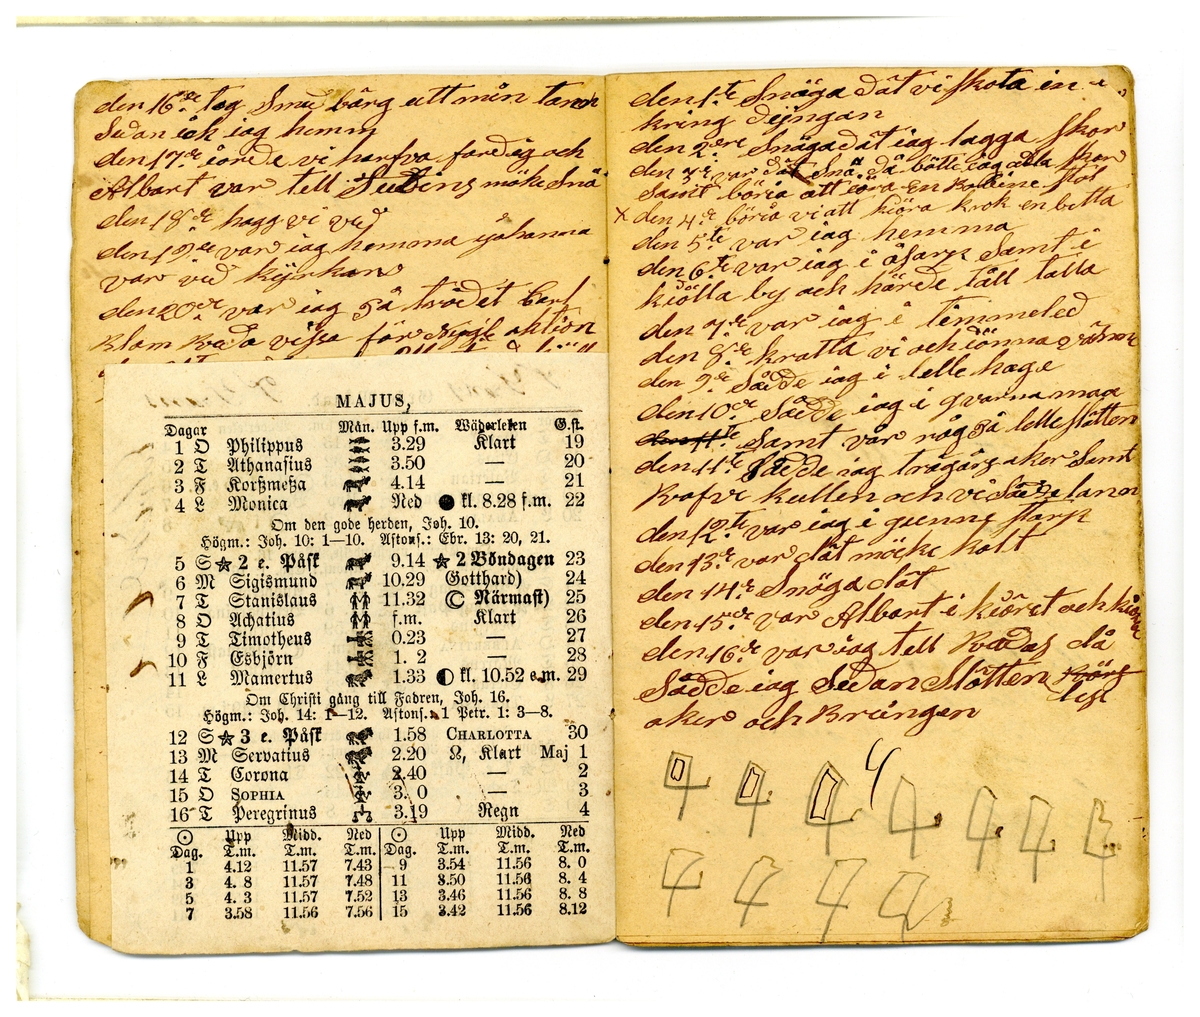 den 16de tog Smu bärg ett mån tanor
Sedan åk iag hemm
den 17de iorde vi harfva fardig och
Albart var tell Seding möke Snö
den 18de hugg vi ved
den 19de var iag hemma
var ved kÿrkan
den 20de var iag på trödet Carl
Klam vissa för aktion
MAJUS,
Dagar Mån. Upp f.m. Wäderleken G.st.
1 O Philippus 3.29 Klart 19
2 T Athanasius 3.50 — 20
3 F Korßmeßa 4.14 — 21
4 L Monica Ned ● kl. 8.28 f.m. 22
Om den gode herden, Joh. 10.
Högm.: Joh. 10: 1—10. Aftons.: Ebr. 13: 20, 21.
5 S ★ 2 e. Påsk 9.14 ★ 2 Böndagen 23
6 M Sigismund 10.29 Gotthard) 24
7 T Stanislaus 11.32 ☾ Närmast) 25
8 O Achatius f.m. Klart 26
9 T Timotheus 0.23 — 27
10 F Esbjörn 1. 2 — 28
11 L Mamertus 1.33 ◐ kl. 10.52 e.m. 29
Om Christi gång till Fadren, Joh. 16.
Högm.: Joh. 14: 1—12. Aftons.: 1 Petr. 1: 3—8.
12 S ★ 3 e. Påsk 1.58 CHARLOTTA 30
13 M Servatius 2.20 ☊, Klart Maj 1
14 T Corona 2.40 — 2
15 O SOPHIA 3. 0 — 3
16 T Peregrinus 3.19 Regn 4
☉ Upp Midd. Ned ☉ Upp Midd. Ned
Dag. T.m. T.m. T.m. Dag. T.m. T.m. T.m.
1 4.12 11.57 7.43 9 3.54 11.56 8. 0
3 4. 8 11.57 7.48 11 3.50 11.56 8. 4
5 4. 3 11.57 7.52 13 3.46 11.56 8. 8
7 3.58 11.56 7.56 15 3.42 11.56 8.12
den 1te Snöga dät vi skota in
kring dÿngan
den 2dre Snöga dät iag lagga skor
den 3de var dät Snö då bötte iag alla skor
samt böria att iöra en Kolbine stör
x den 4de böria vi att kiöra krok en betta
den 5te var iag hemma
den 6te var iag i åsarp Samt i
kiölla by och hörde tåll talla
den 7de var iag i timmeled
den 8de kratta vi och iömna
den 9de Sådde iag i lelle hage
den 10de Sådde iag i qvarna maa
Samt vår råg på lelle slåtten
den 11te Sådde iag trägårs aker Samt
Rofve kullen och vi Sådde lanor
den 12te var iag i gunnestarp
den 13de var dät möcke kalt
den 14de Snöga dät
den 15de var Albart i kiöret och kiörde
den 16de var iag tell då
Sådde iag Sedan Slåtten
aker och Brången
4 4 4 4 4 4 4 4
4 4 4 4